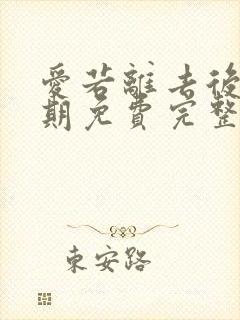 愛若離去後
期免費完整
東安路